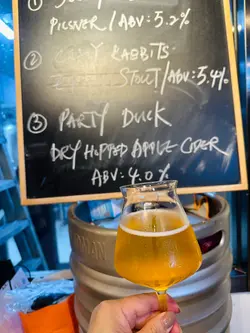 ①
PILSNER / ABV: 5.2%
② RABBITS
STOUT / ABV: 5.4%
③ PARTY DUCK
DRY HOPPED APPLE CIDER
ABV: 4.0%